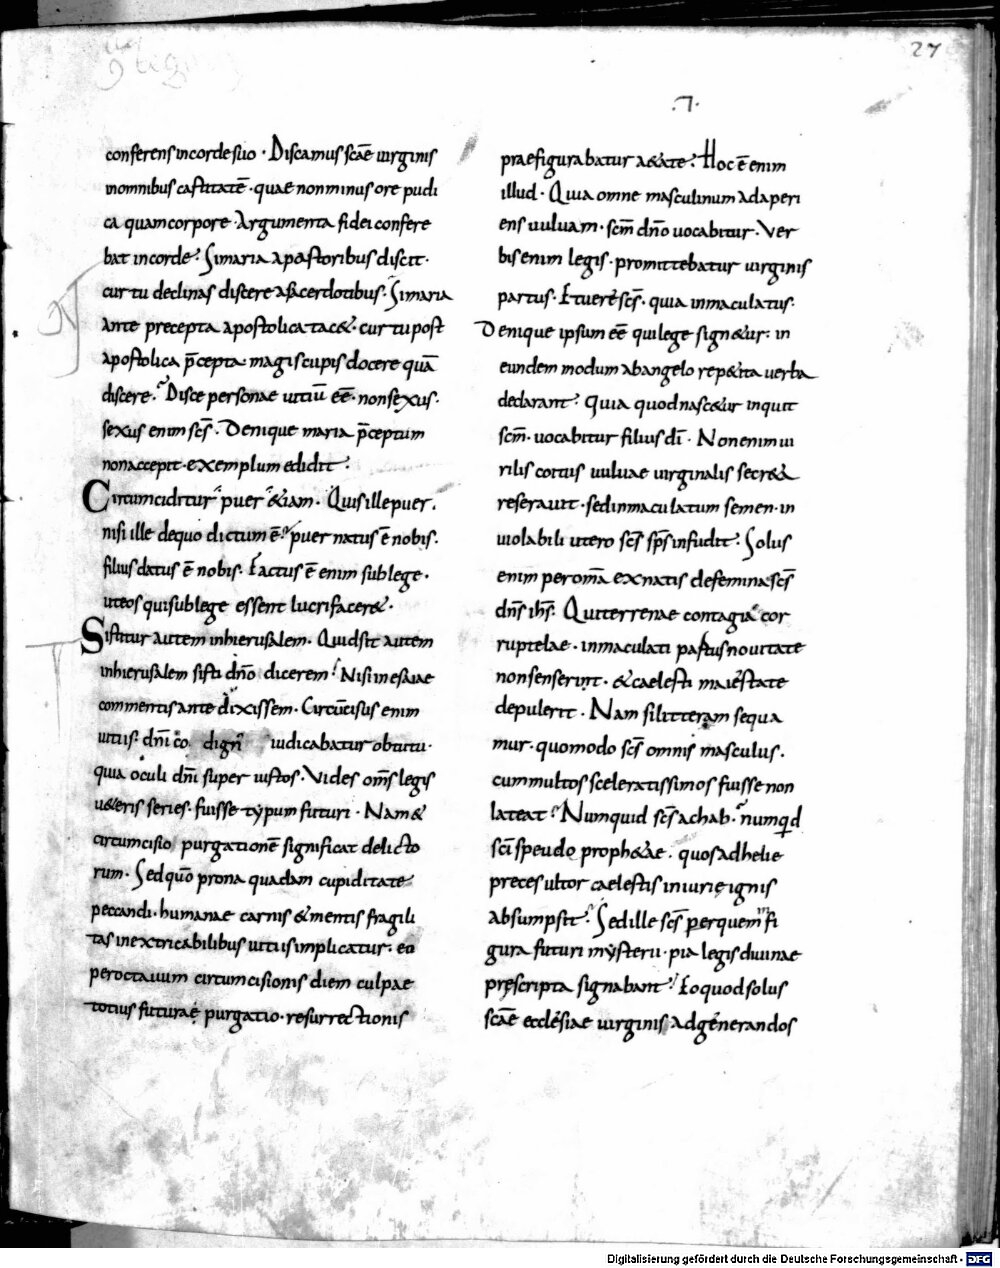 27
.7.
conferens in corde suo · Discamus scāe uirginis
in omnibus castitatē · quae non minus ore pudi
ca quam corpore · Argumenta fidei confere
bat in corde · Si maria a pastoribus discit ·
cur tu declinas discere a sacerdotibus · Si maria
Ante precepta apostolica tacet · cur tu post
apostolica p̄cepta · magis cupis docere quā
discere · Disce personae uitiū eē · non sexus ·
sexus enim scs̄ · Denique maria p̄ceptum
non accepit · exemplum edidit ·
Circumciditur puer etiam · Quis ille puer ·
nisi ille de quo dictum ē · puer natus ē nobis ·
filius datus ē nobis · Factus ē enim sub lege ·
ut eos qui sub lege essent lucrifaceret ·
Sistitur autem in hierusalem · Quid sit autem
in hierusalem sisti dn̄o dicerem · Nisi in esaiae
commentis ante dixissem · Circūcisus enim
uitiis · dn̄ico dign iudicabatur obtutu ·
quia oculi dn̄i super iustos · Vides om̄s legis
ueteris series · fuisse typum futuri · Nam et
circumcisio purgationē significat delicto
rum · Sed quō prona quadam cupiditate
peccandi · humanae carnis et mentis fragili
tas inextricabilibus uitiis implicatur · eo
per octauum circumcisionis diem culpae
totius futurae purgatio · resurrectionis
praefigurabatur aetate · Hoc ē enim
illud · Quia omne masculinum adaperi
ens uuluam · scm̄ dn̄o uocabitur · Ver
bis enim legis · promittebatur uirginis
partus · Et uere scs̄ · quia inmaculatus ·
Denique ipsum eē qui lege signetur · in
eundem modum ab angelo repetita uerba
declarant · Quia quod nascetur inquit
scm̄ · uocabitur filius dī · Non enim ui
rilis coitus uuluae uirginalis secreta
reserauit · sed inmaculatum semen · in
uiolabili utero scs̄ sps̄ infudit · Solus
enim per om̄a ex natis de femina scs̄
dn̄s ihs̄ · Qui terrenae contagia cor
ruptelae · inmaculati partus nouitate
non senserint · et caelesti maiestate
depulerit · Nam si litteram sequa
mur · quomodo scs̄ omnis masculus ·
cum multos sceleratissimos fuisse non
lateat · Numquid scs̄ achab · numqid
scī speudo prophetae · quos ad helie
preces ultor caelestis iniurię ignis
absumpsit · Sed ille scs̄ per quem fi
gura futuri mysterii · pia legis diuinae
prescripta signabant · Eo quod solus
scāe ecclesiae uirginis ad generandos
Digitalisierung gefördert durch die Deutsche Forschungsgemeinschaft - DFG